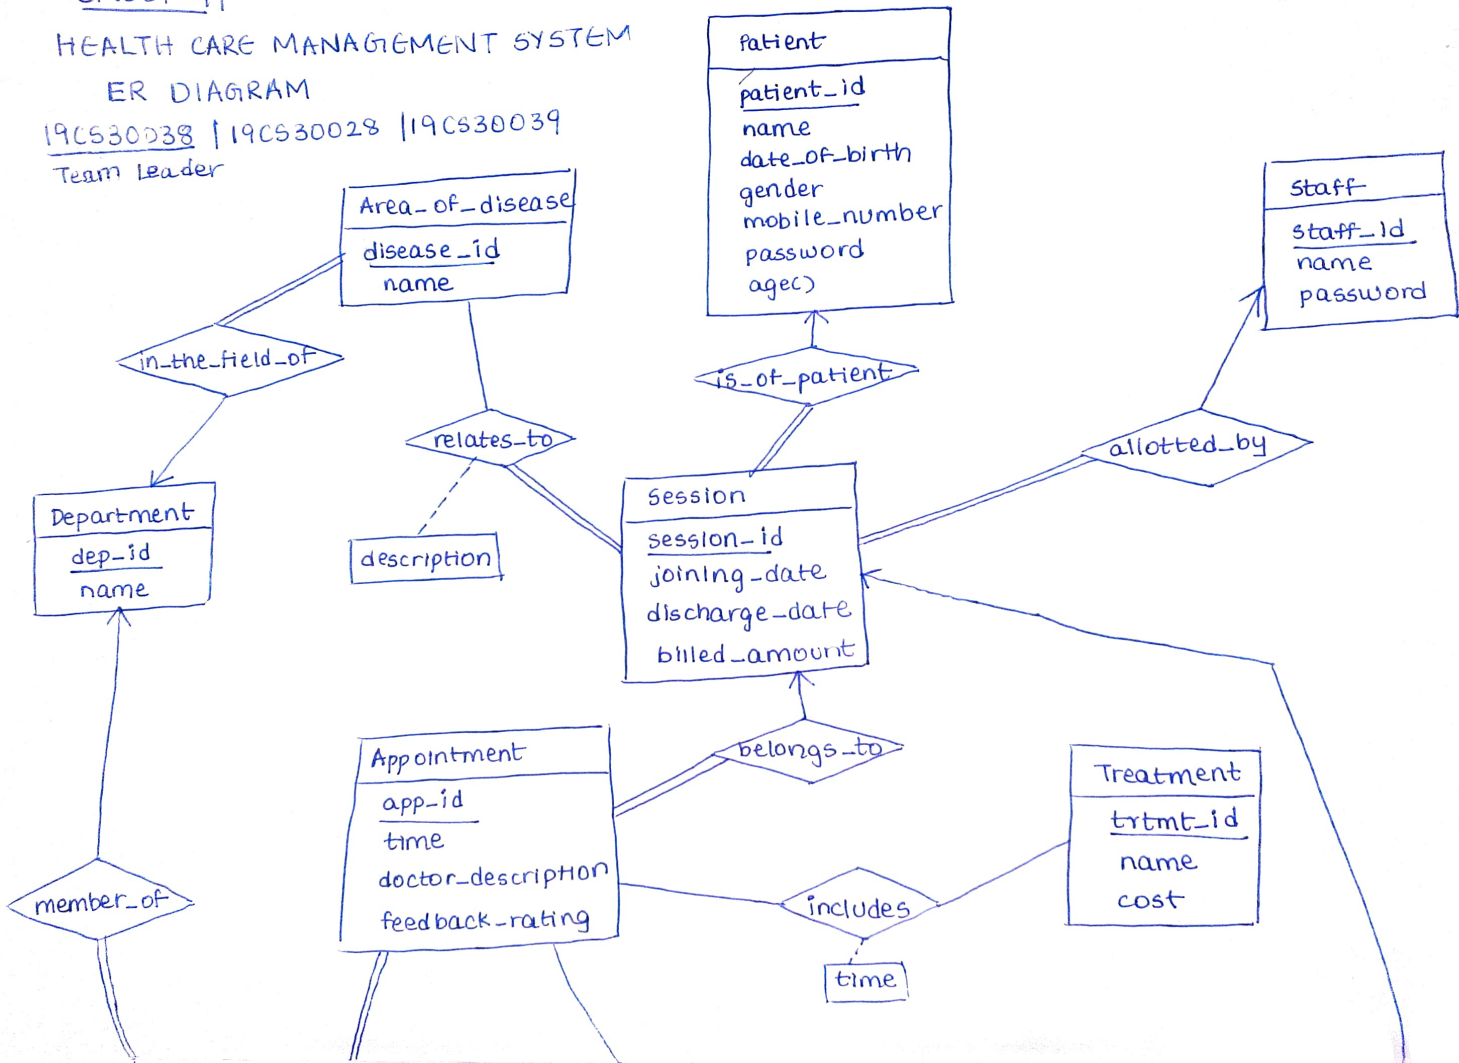 HEALTH CARE MANAGEMENT SYSTEM
ER DIAGRAM
19CS30038 | 19CS30028 | 19CS30039
Team Leader
Patient
patient_id
name
date_of_birth
gender
mobile_number
password
age()
Staff
staff_id
name
password
Area_of_disease
disease_id
name
in_the_field_of
relates_to
description
is_of_patient
allotted_by
Department
dep_id
name
Session
session_id
joining_date
discharge_date
billed_amount
belongs_to
Appointment
app_id
time
doctor_description
feedback_rating
Treatment
trtmt_id
name
cost
member_of
includes
time